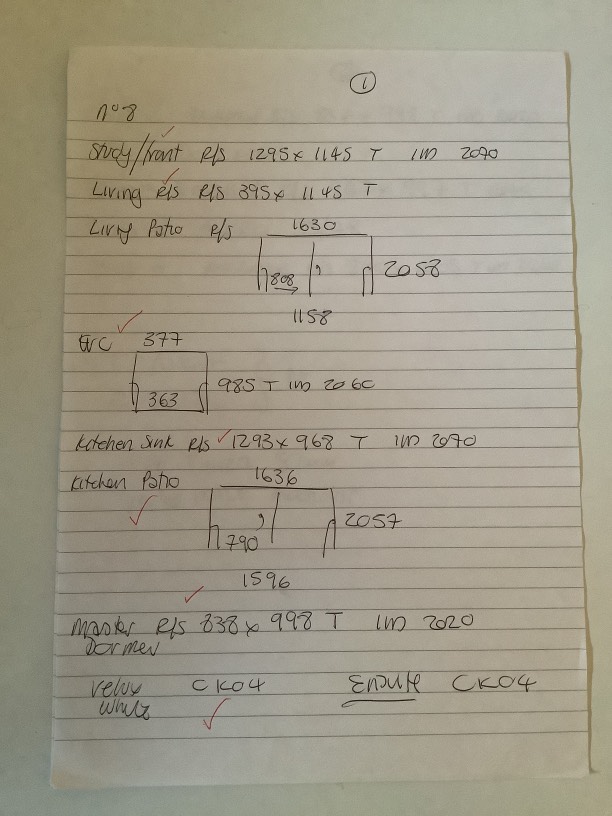 1
n°8
Study/front R/S 1295 x 1145 T IM 2070
Living R/S R/S 395 x 1145 T
Living Patio R/S 1630
808 2058
1158
377
363 985 T IM 2060
Kitchen Sink R/S 1293 x 968 T IM 2070
Kitchen Patio 1636
790 2057
1596
Master R/S 838 x 998 T IM 2020
Dormer
Velux CK04 Ensuite CK04
White